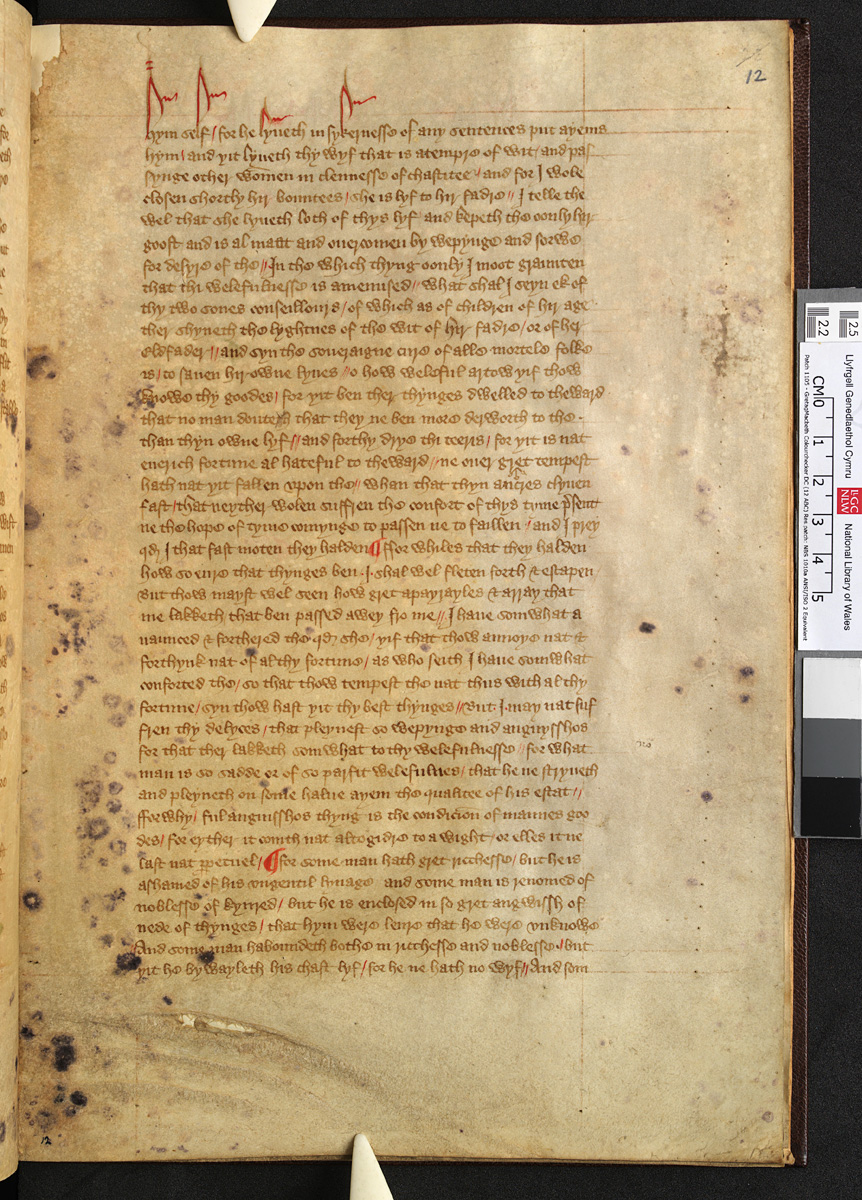 12
hym self / for he lyueth in sykernesse of any sentences put ayeins
hym / and yit lyueth thy wyf that is atempre of wit / and pas
synge other women in clennesse of chastitee // and for I wole
closen shortly hir bountees / she is lyf to hir fadre // I telle the
wel that she lyueth loth of thys lyf and kepeth the oonly hir
goost and is al maat and ouercomen by wepynge and sorwe
for desyre of the // In the which thyng oonly I moot graunten
that thi welefulnesse is amenused // what shal I seyn ek of
thy two sones conseillours / of which as of children of hir age
ther shyneth the lyghtnes of the wit of hir fadre / or of her
eldfader // and syn the souereigne cure of alle mortele folke
is / to sauen hir owne lyues // o how weleful artow yif thow
knowe thy goodes / for yit ben ther thynges dwelled to theward
that no man douteth that they ne ben more derworth to the
than thyn owne lyf // and forthy drye thi teeris / for yit is nat
euerich fortune al hateful to theward // ne ouer gret tempest
hath nat yit fallen vpon the // whan that thyn ancres clyuen
fast / that neyther wolen suffren the confort of thys tyme p̃sent
ne the hope of tyme comynge to passen ne to faillen / and I prey
qd I that fast moten they halden ¶ ffor whiles that they halden
how so eure that thynges ben .I. shal wel fleten forth & estapen
But thow mayst wel seen how gret apayrayles & array that
me lakketh / that ben passed awey fro me // I haue somwhat a
uaunced & forthered the qd she / yif that thow annoye nat &
forthynk nat of al thy fortune / as who seith I haue somwhat
conforted the / so that thow tempest the nat thus with al thy
fortune / syn thow hast yit thy best thynges // But I may nat suf
fren thy delyces / that pleynest so wepynge and anguysshos
for that ther lakketh somwhat to thy welefulnesse / for what
man is so sadde er of so parfit welefulnes / that he ne stryueth
and pleyneth on some halue ayem the qualitee of his estat //
ffor why / ful anguisshos thyng is the condicion of mannes goo
des / for eyther it comth nat altogidre to a wight / or elles it ne
last nat ꝑpetuel / ¶ for some man hath gret ricchesse / but he is
ashamed of his vngentil lynage and some man is renomed of
noblesse of kynred / but he is enclosed in so gret angwissh of
nede of thynges / that hym were leure that he were vnknowe
And some man haboundeth bothe in ricchesse and noblesse / but
yit he bywayleth his chast lyf / for he ne hath no wyf // And som
12
22
23
CM 0 1 2 3 4 5
Llyfrgell Genedlaethol Cymru
LLGC
NLW
National Library of Wales